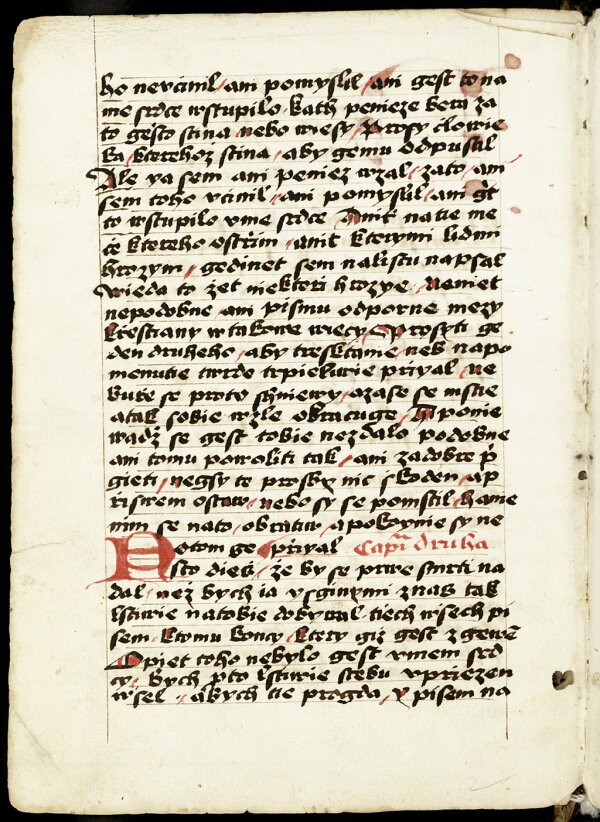 ho nevcinil ani pomyslil ani gest to na
me srdce wstupilo kach penieze beru za
to gesto stina nebo wiesy Prosy clowie
ka kterehoz stina aby gemu odpustil
Ale ya sem ani peniez wzal zato ani
sem toho vcinil ani pomyslil ani gt
to wstupilo vme srdce Anit na tie me
ce ktereho ostrim anit kterymi lidmi
hrozym gedinet sem nalistu napsal
wieda to zet niektori hrozye Neniet
nepodobne ani pismu odporne mezy
krestiany wtakowe wiecy Prosyti ge
den druheho aby tresktanie neb napo
menutie twrde trpieliwie priyal ne
bure se proto hniewy azase se mstie
atak sobie wzle obracuge A ponie
wadz se gest tobie nezdalo podobne
ani tomu powoliti tak ani zadobre p
gieti negsy te prosby nic skoden ap
ristwem ostaw nebo sy se pomstil hanie
nim se nato obratiw apokoynie sy ne
Potom ge priyal Capra druha
sto dies ze by se prwe smrti na
dal nez bych ia vsginymi znas tak
lstiwie natobie dobywal tiech wsech pi
sem ktomu koncy ktery giz gest zgewen
Opiet toho nebylo gest vmem srd
cy bych pto lstiwie stebu vpriezen
wsel abych tie progda y pisem na